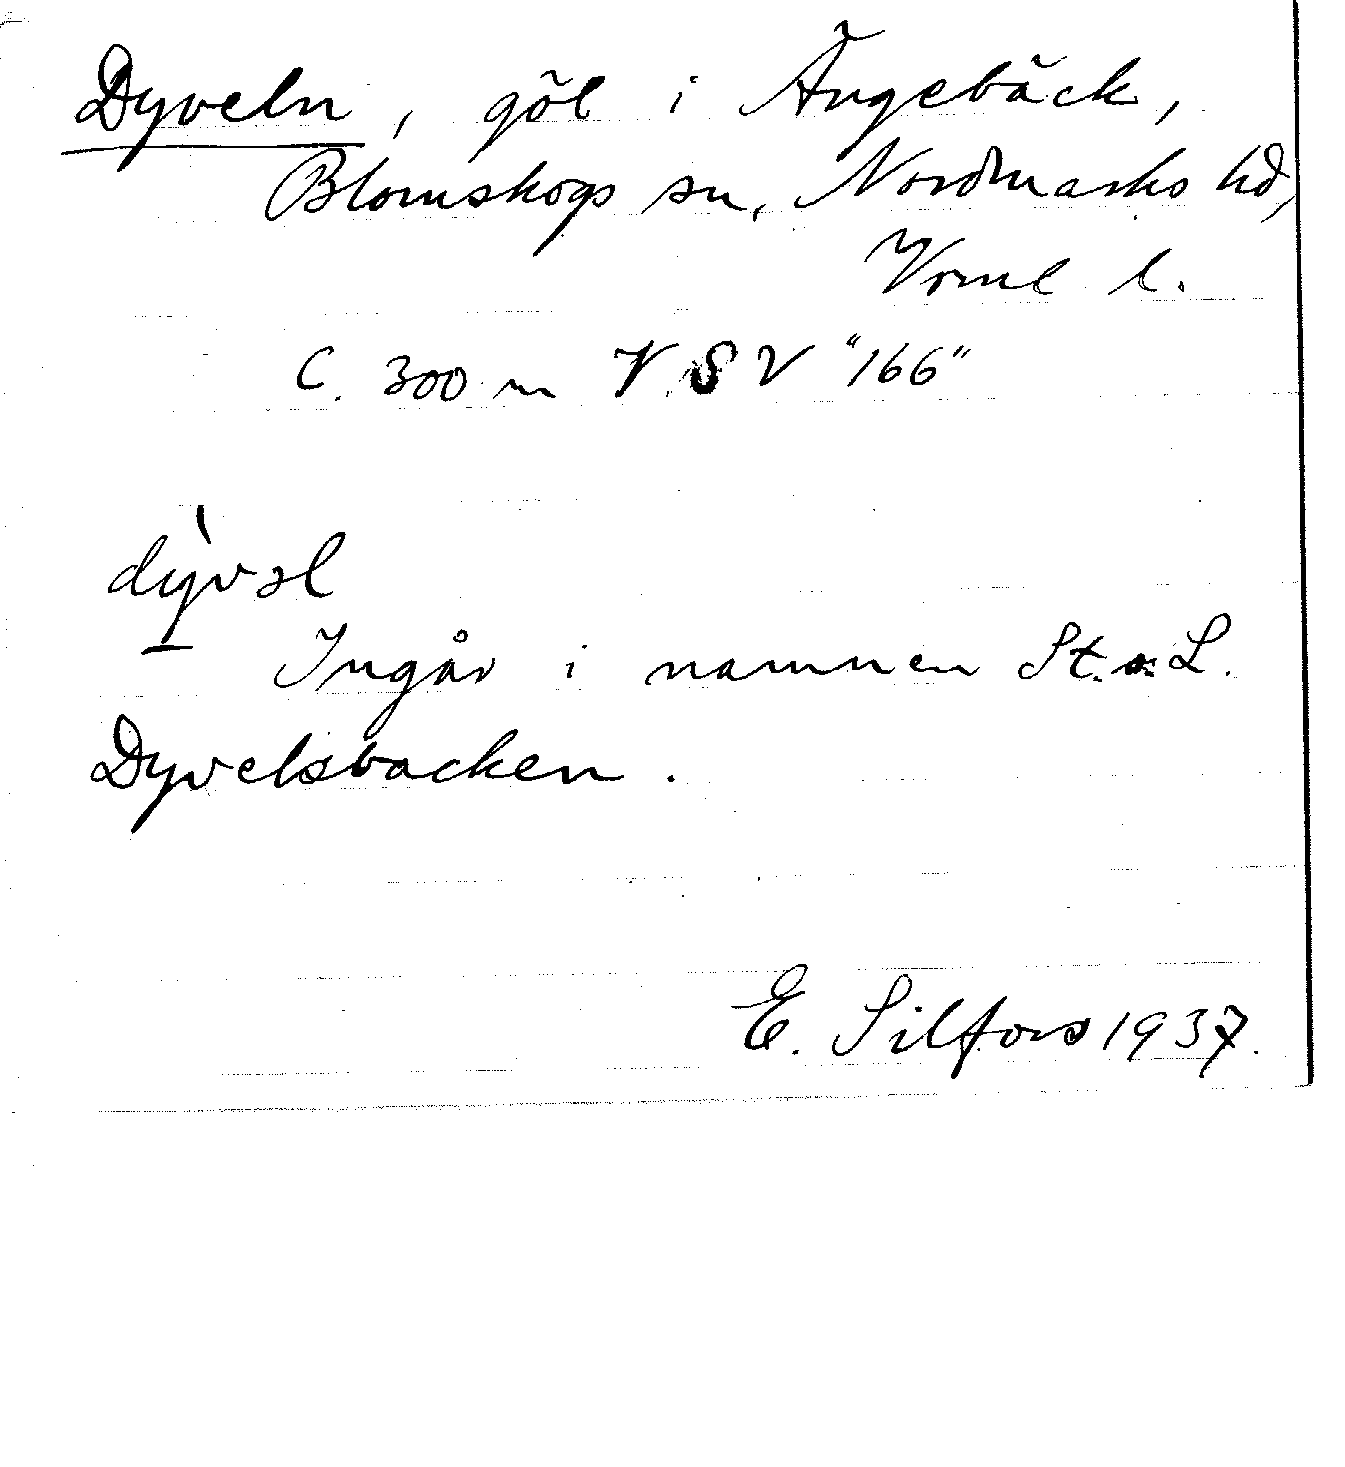 Dyveln, göl i Ängebäck,
Blomskogs sn, Nordmarks hd,
Vrml l.
C. 300 m VSV "166"
dỳ̲vəl
Ingår i namnen St. o. L.
Dyvelsbacken.
E. Silfors 1937.